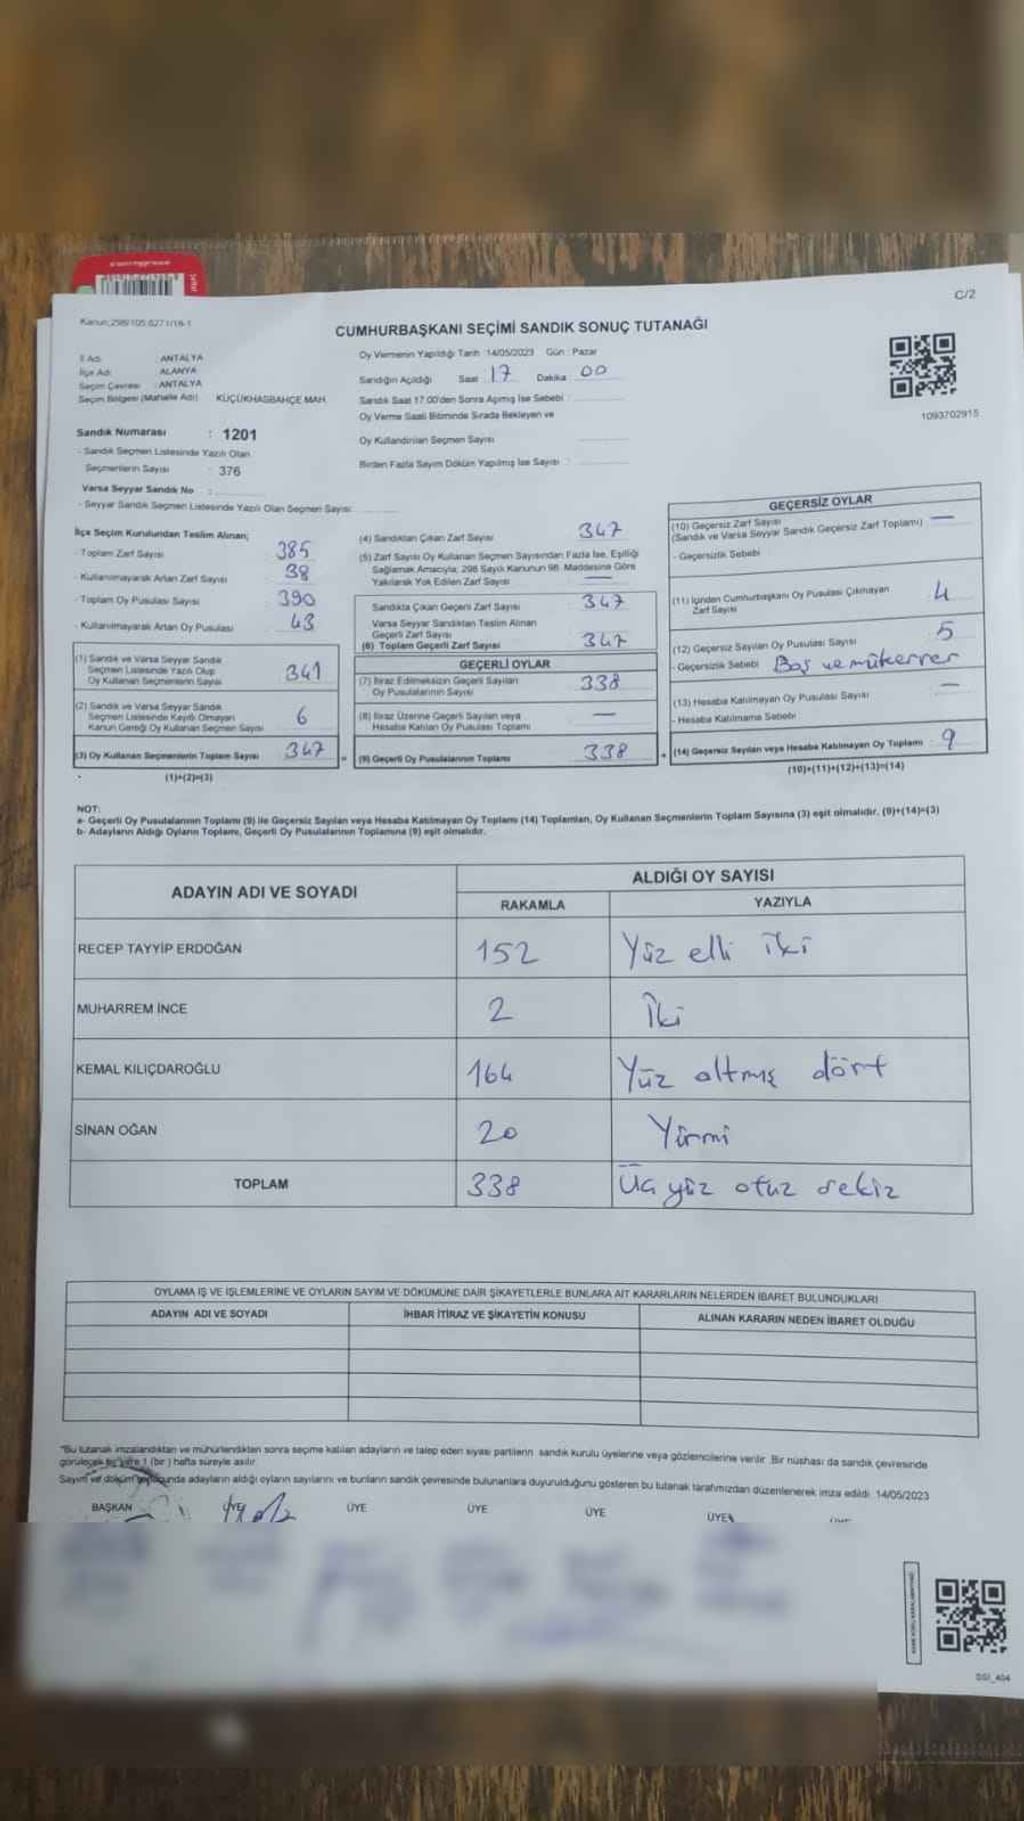 C/2
Kanun:298/105,6271/16-1
CUMHURBAŞKANI SEÇİMİ SANDIK SONUÇ TUTANAĞI
İl Adı : ANTALYA
İlçe Adı : ALANYA
Seçim Çevresi : ANTALYA
Seçim Bölgesi (Mahalle Adı) KÜÇÜKHASBAHÇE MAH.
Oy Vermenin Yapıldığı Tarih :14/05/2023 Gün : Pazar
Sandığın Açıldığı Saat : 17 Dakika : 00
Sandık Saat 17:00'den Sonra Açmış İse Sebebi :
Oy Verme Saati Bitiminde Sırada Bekleyen ve
Oy Kullandırılan Seçmen Sayısı
Birden Fazla Sayım Döküm Yapılmış İse Sayısı :
1093702915
Sandık Numarası : 1201
- Sandık Seçmen Listesinde Yazılı Olan
Seçmenlerin Sayısı : 376
Varsa Seyyar Sandık No :
- Seyyar Sandık Seçmen Listesinde Yazılı Olan Seçmen Sayısı:
İlçe Seçim Kurulundan Teslim Alınan;
- Toplam Zarf Sayısı 385
- Kullanılmayarak Artan Zarf Sayısı 38
- Toplam Oy Pusulası Sayısı 390
- Kullanılmayarak Artan Oy Pusulası 43
(1) Sandık ve Varsa Seyyar Sandık
Seçmen Listesinde Yazılı Olup
Oy Kullanan Seçmenlerin Sayısı 341
(2) Sandık ve Varsa Seyyar Sandık
Seçmen Listesinde Kayıtlı Olmayan
Kanun Gereği Oy Kullanan Seçmen Sayısı 6
(3) Oy Kullanan Seçmenlerin Toplam Sayısı 347
(1)+(2)=(3)
(4) Sandıktan Çıkan Zarf Sayısı 347
(5) Zarf Sayısı Oy Kullanan Seçmen Sayısından Fazla İse, Eşitliği
Sağlamak Amacıyla; 298 Sayılı Kanunun 98. Maddesine Göre
Yakılarak Yok Edilen Zarf Sayısı —
Sandıkta Çıkan Geçerli Zarf Sayısı 347
Varsa Seyyar Sandıktan Teslim Alınan
Geçerli Zarf Sayısı
(6) Toplam Geçerli Zarf Sayısı 347
GEÇERLİ OYLAR
(7) İtiraz Edilmeksizin Geçerli Sayılan
Oy Pusulalarının Sayısı 338
(8) İtiraz Üzerine Geçerli Sayılan veya
Hesaba Katılan Oy Pusulası Toplamı —
= (9) Geçerli Oy Pusulalarının Toplamı 338
GEÇERSİZ OYLAR
(10) Geçersiz Zarf Sayısı —
(Sandık ve Varsa Seyyar Sandık Geçersiz Zarf Toplamı)
- Geçersizlik Sebebi
(11) İçinden Cumhurbaşkanı Oy Pusulası Çıkmayan
Zarf Sayısı 4
(12) Geçersiz Sayılan Oy Pusulası Sayısı 5
- Geçersizlik Sebebi Boş ve mükerrer
(13) Hesaba Katılmayan Oy Pusulası Sayısı —
- Hesaba Katılmama Sebebi
+ (14) Geçersiz Sayılan veya Hesaba Katılmayan Oy Toplamı 9
(10)+(11)+(12)+(13)=(14)
NOT:
a- Geçerli Oy Pusulalarının Toplamı (9) ile Geçersiz Sayılan veya Hesaba Katılmayan Oy Toplamı (14) Toplamları, Oy Kullanan Seçmenlerin Toplam Sayısına (3) eşit olmalıdır. (9)+(14)=(3)
b- Adayların Aldığı Oyların Toplamı, Geçerli Oy Pusulalarının Toplamına (9) eşit olmalıdır.
ADAYIN ADI VE SOYADI ALDIĞI OY SAYISI
RAKAMLA YAZIYLA
RECEP TAYYİP ERDOĞAN 152 Yüz elli iki
MUHARREM İNCE 2 İki
KEMAL KILIÇDAROĞLU 164 Yüz altmış dört
SİNAN OĞAN 20 Yirmi
TOPLAM 338 Üç yüz otuz sekiz
OYLAMA İŞ VE İŞLEMLERİNE VE OYLARIN SAYIM VE DÖKÜMÜNE DAİR ŞİKAYETLERLE BUNLARA AİT KARARLARIN NELERDEN İBARET BULUNDUKLARI
ADAYIN ADI VE SOYADI İHBAR İTİRAZ VE ŞİKAYETİN KONUSU ALINAN KARARIN NEDEN İBARET OLDUĞU
"Bu tutanak imzalandıktan ve mühürlendikten sonra seçime katılan adayların ve talep eden siyasi partilerin sandık kurulu üyelerine veya gözlemcilerine verilir. Bir nüshası da sandık çevresinde
görülecek bir yere 1 (bir) hafta süreyle asılır.
Sayım ve döküm sonucunda adayların aldığı oyların sayılarını ve bunların sandık çevresinde bulunanlara duyurulduğunu gösteren bu tutanak tarafımızdan düzenlenerek imza edildi. 14/05/2023
BAŞKAN ÜYE ÜYE ÜYE ÜYE ÜYE
SSI_404